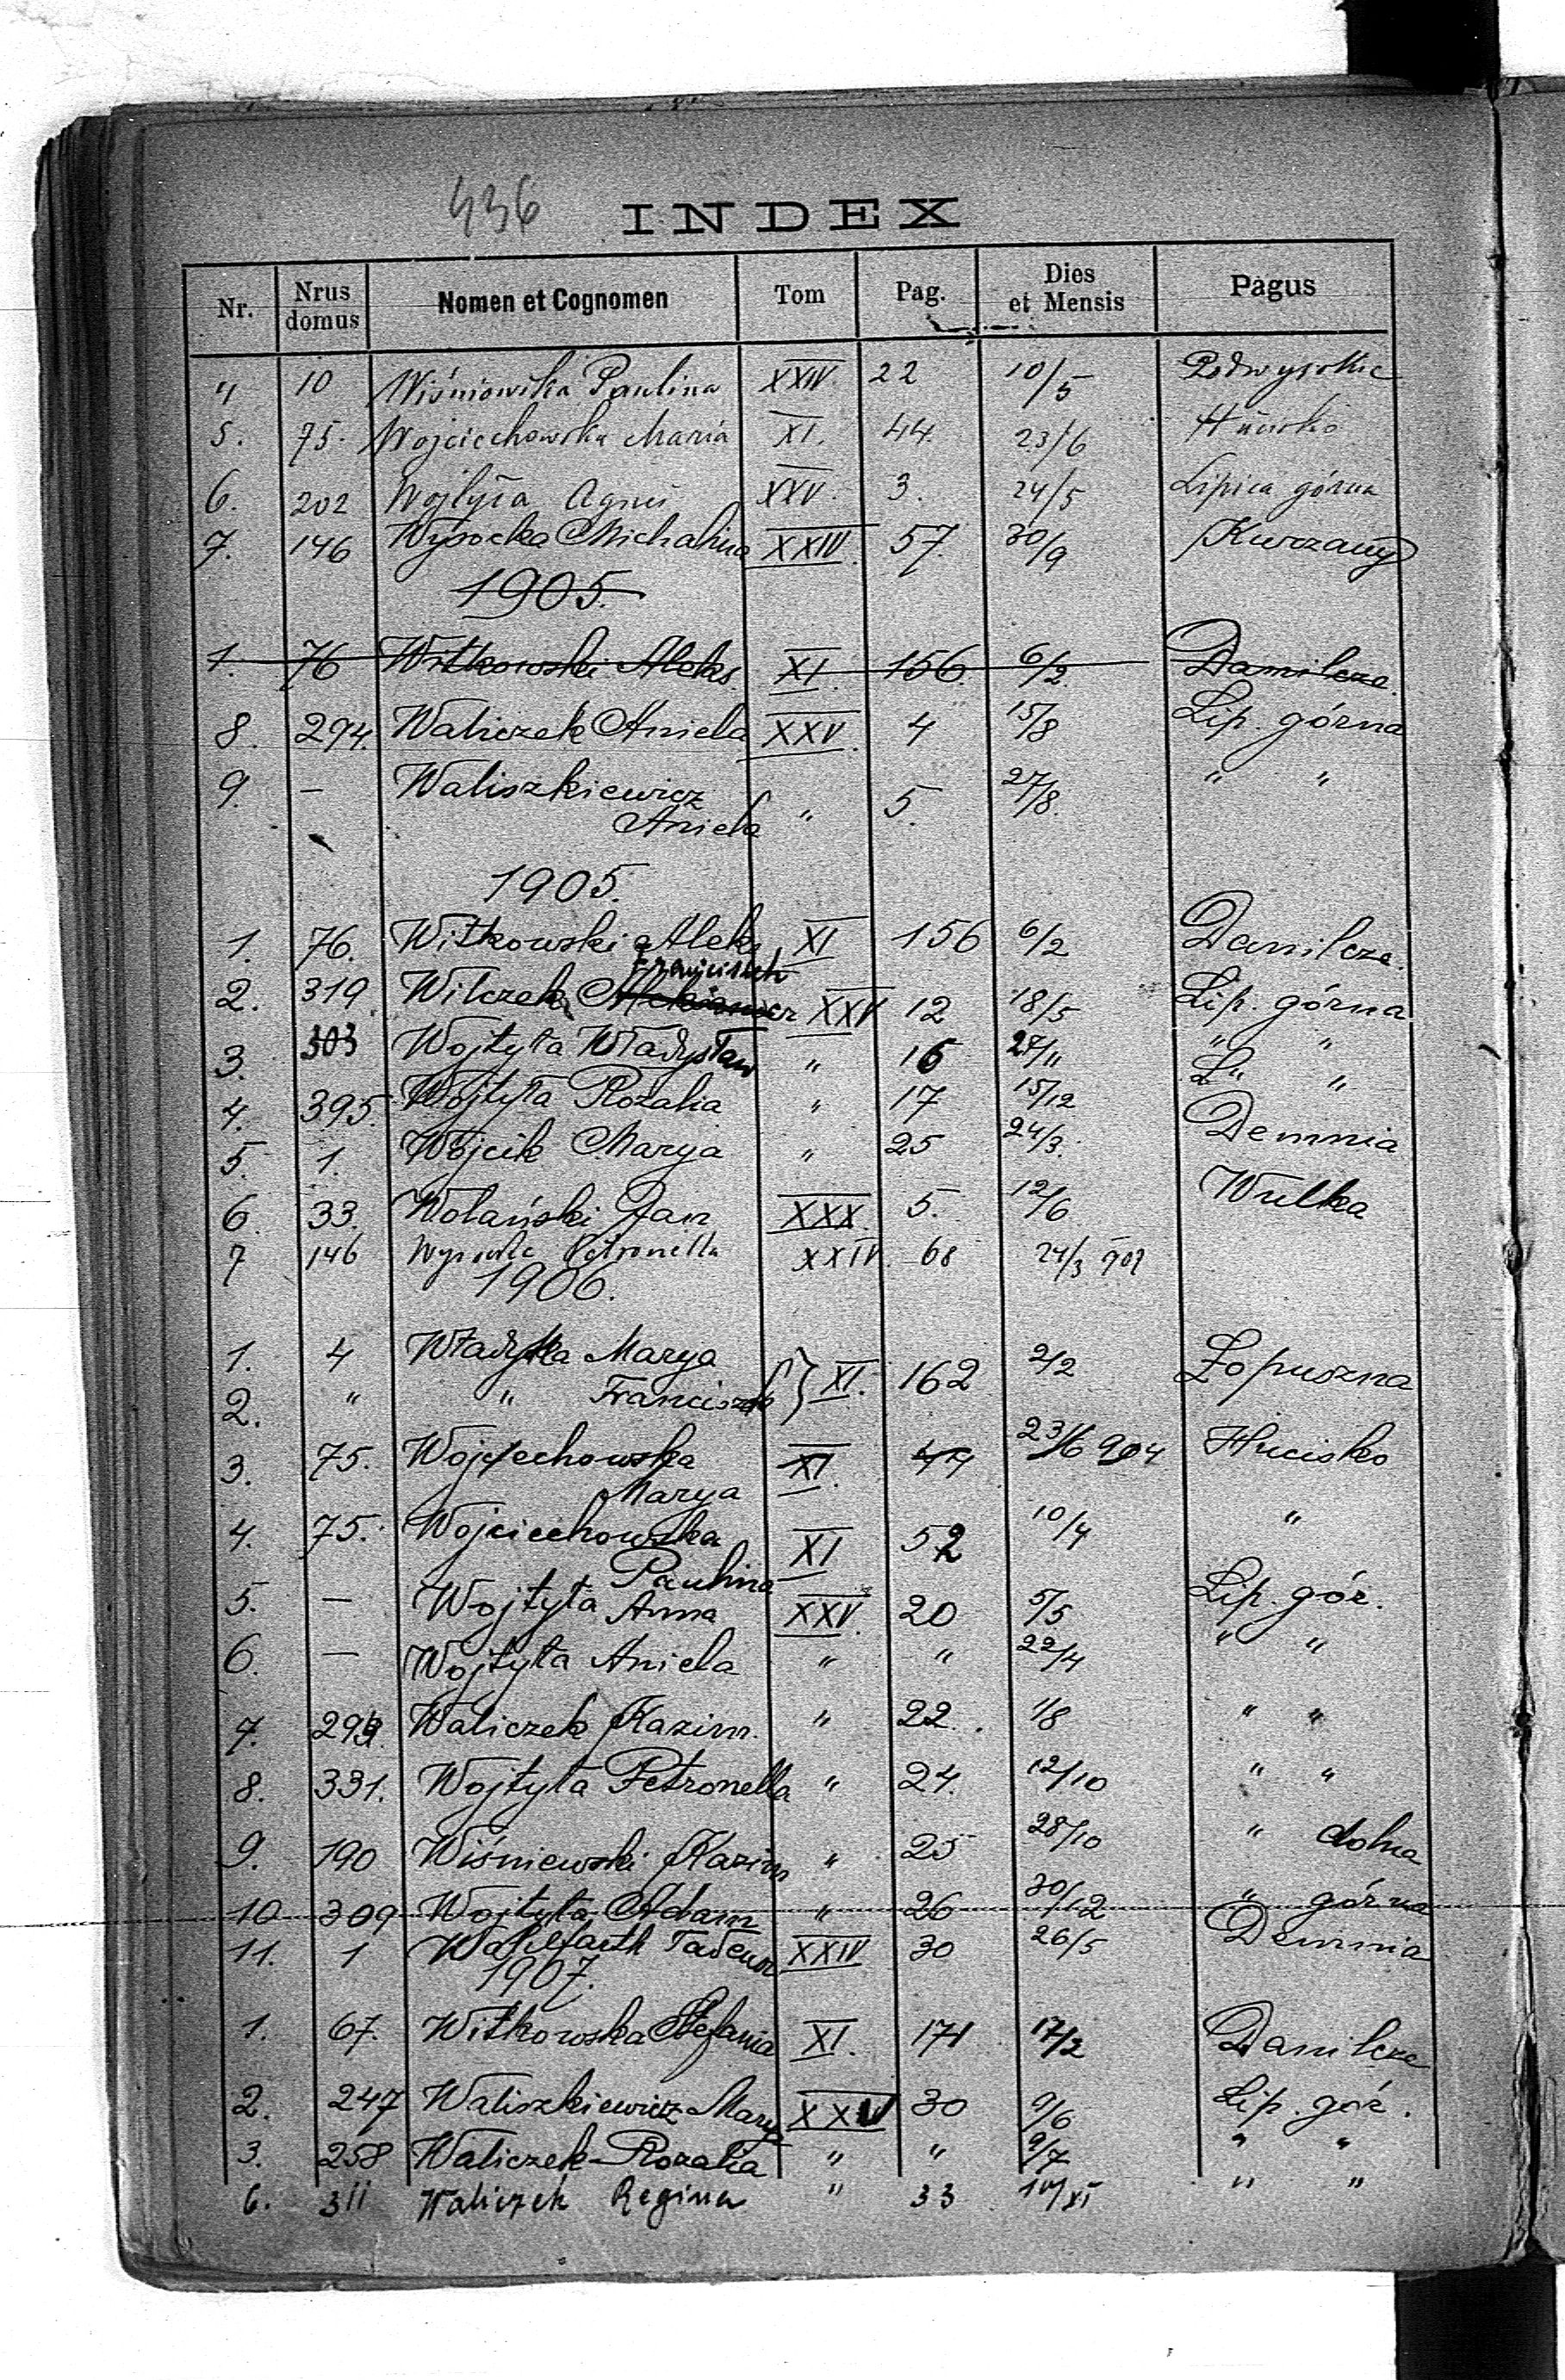 436
INDEX
Nr. Nrus domus Nomen et Cognomen Tom Pag. Dies et Mensis Pagus
4 10 Wiśniowska Paulina XXIV. 22 10/5 Podwysokie
5. 75. Wojciechowska Maria XI. 44. 23/6 Hucisko
6. 202 Wojtyła Agnes XXV. 3. 24/5 Lipica górna
7. 146 Wysocka Michalina XXIV. 57. 30/9 Kurzany
1905.
1. 76 Witkowski Aleks. XI. 156. 6/2. Danilcze.
8. 294. Waliczek Aniela XXV. 4 15/8 Lip. górna
9. — Waliszkiewicz " 5. 27/8. " "
Aniela
1905.
1. 76. Witkowski Aleks. XI 156 6/2 Danilcze.
Franciszek
2. 319. Wilczek XXV 12 18/5 Lip. górna
3. 303 Wojtyła Władysław " 16 27/11 " "
4. 395. Wojtyła Rozalia " 17 15/12 L" "
5. 1. Wojcik Marya " 25 24/3. Demnia
6. 33. Wolański Jan XXX. 5. 12/6 Wulka
7 146 Wysocka Petronella XXIV. 68 24/3 902
1906.
1. 4 Władyka Marya } XI. 162 2/2 Łopuszna
2. " " Franciszek
3. 75. Wojciechowska XI. 44 23/6 904 Hucisko
Marya
4. 75. Wojciechowska XI 52 10/4 "
Paulina
5. — Wojtyła Anna XXV. 20 5/5 Lip. gór.
6. — Wojtyła Aniela " " 22/4 " "
7. 294. Waliczek Kazim. " 22. 1/8 " "
8. 331. Wojtyła Petronella " 24. 12/10 " "
9. 190 Wiśniewski Kazim " 25 28/10 " dolna
10 309 Wojtyła Adam " 26 30/12 " górna
11. 1 Wohlfarth Tadeusz XXIV 30 26/5 Demnia
1907.
1. 67. Witkowska Stefania XI. 171 17/2 Danilcze
2. 247 Waliszkiewicz Marya XXV 30 9/6 Lip. gór.
3. 258 Waliczek Rozalia " " 9/7 " "
6. 311 Waliczek Regina " 33 10/XI " "